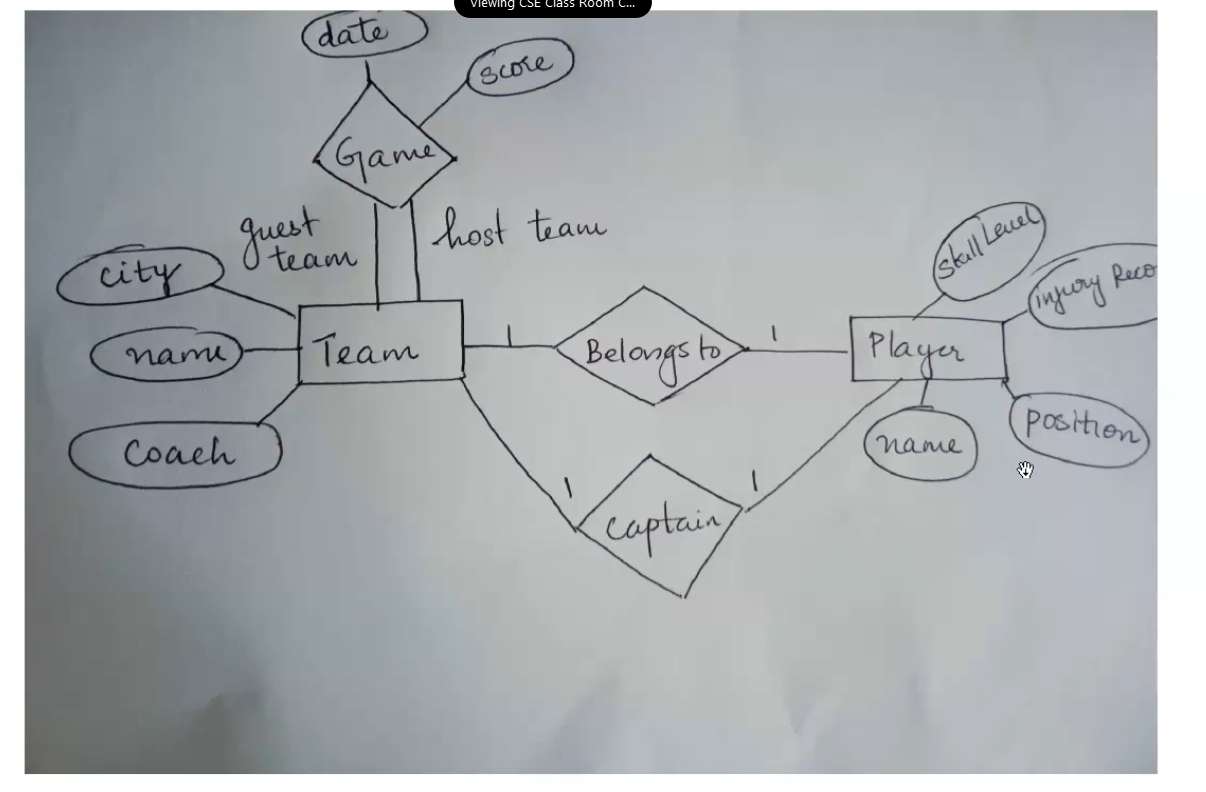 Viewing CSE Class Room C...
date
score
Game
guest
team
host team
city
name
coach
Team
1
Belongs to
1
Player
Skill Level
injury Reco
position
name
1
captain
1